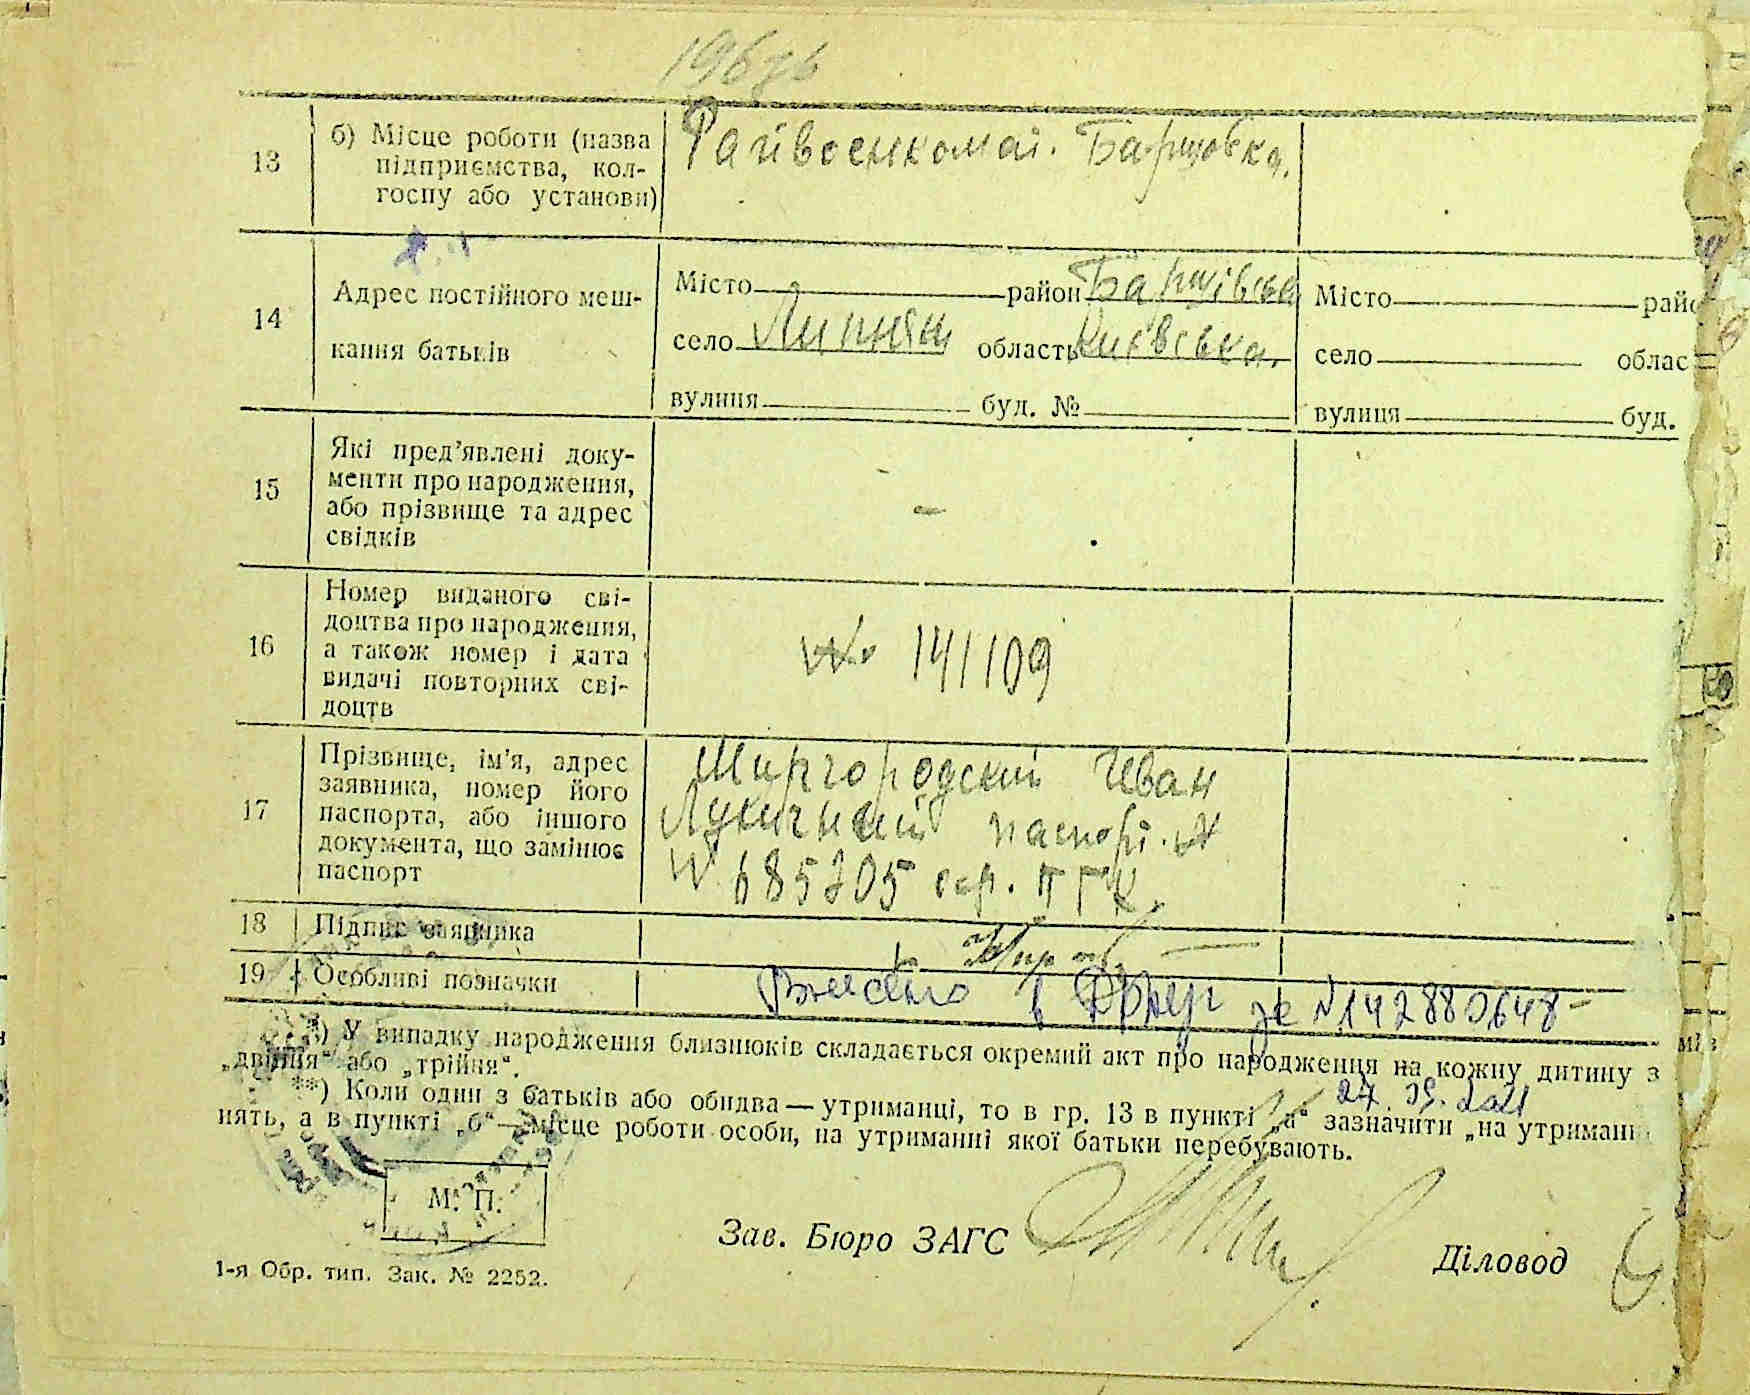 13
б) Місце роботи (назва
підприємства, кол-
госпу або установи)
14
Адрес постійного меш-
кання батьків
Місто район
село область Київська.
вулиця буд. №
Місто райо
село облас
вулиця буд.
15
Які пред’явлені доку-
менти про народження,
або прізвище та адрес
свідків
-
16
Номер виданого сві-
доцтва про народження,
а також номер і дата
видачі повторних сві-
доцтв
№ 141109
17
Прізвище, ім’я, адрес
заявника, номер його
паспорта, або іншого
документа, що замінює
паспорт
Миргородский Иван
паспорт
№ 685205 сер.
18 Підпис заявника
19 Особливі позначки
Внесено в за № 142880648
*) У випадку народження близнюків складається окремий акт про народження на кожну дитину з
„двійня“ або „трійня“.
27.05.2021
**) Коли один з батьків або обидва — утриманці, то в гр. 13 в пункті „а“ зазначити „на утриманн
нять, а в пункті „б“ — місце роботи особи, на утриманні якої батьки перебувають.
М. П.
Зав. Бюро ЗАГС
Діловод
1-я Обр. тип. Зак. № 2252.